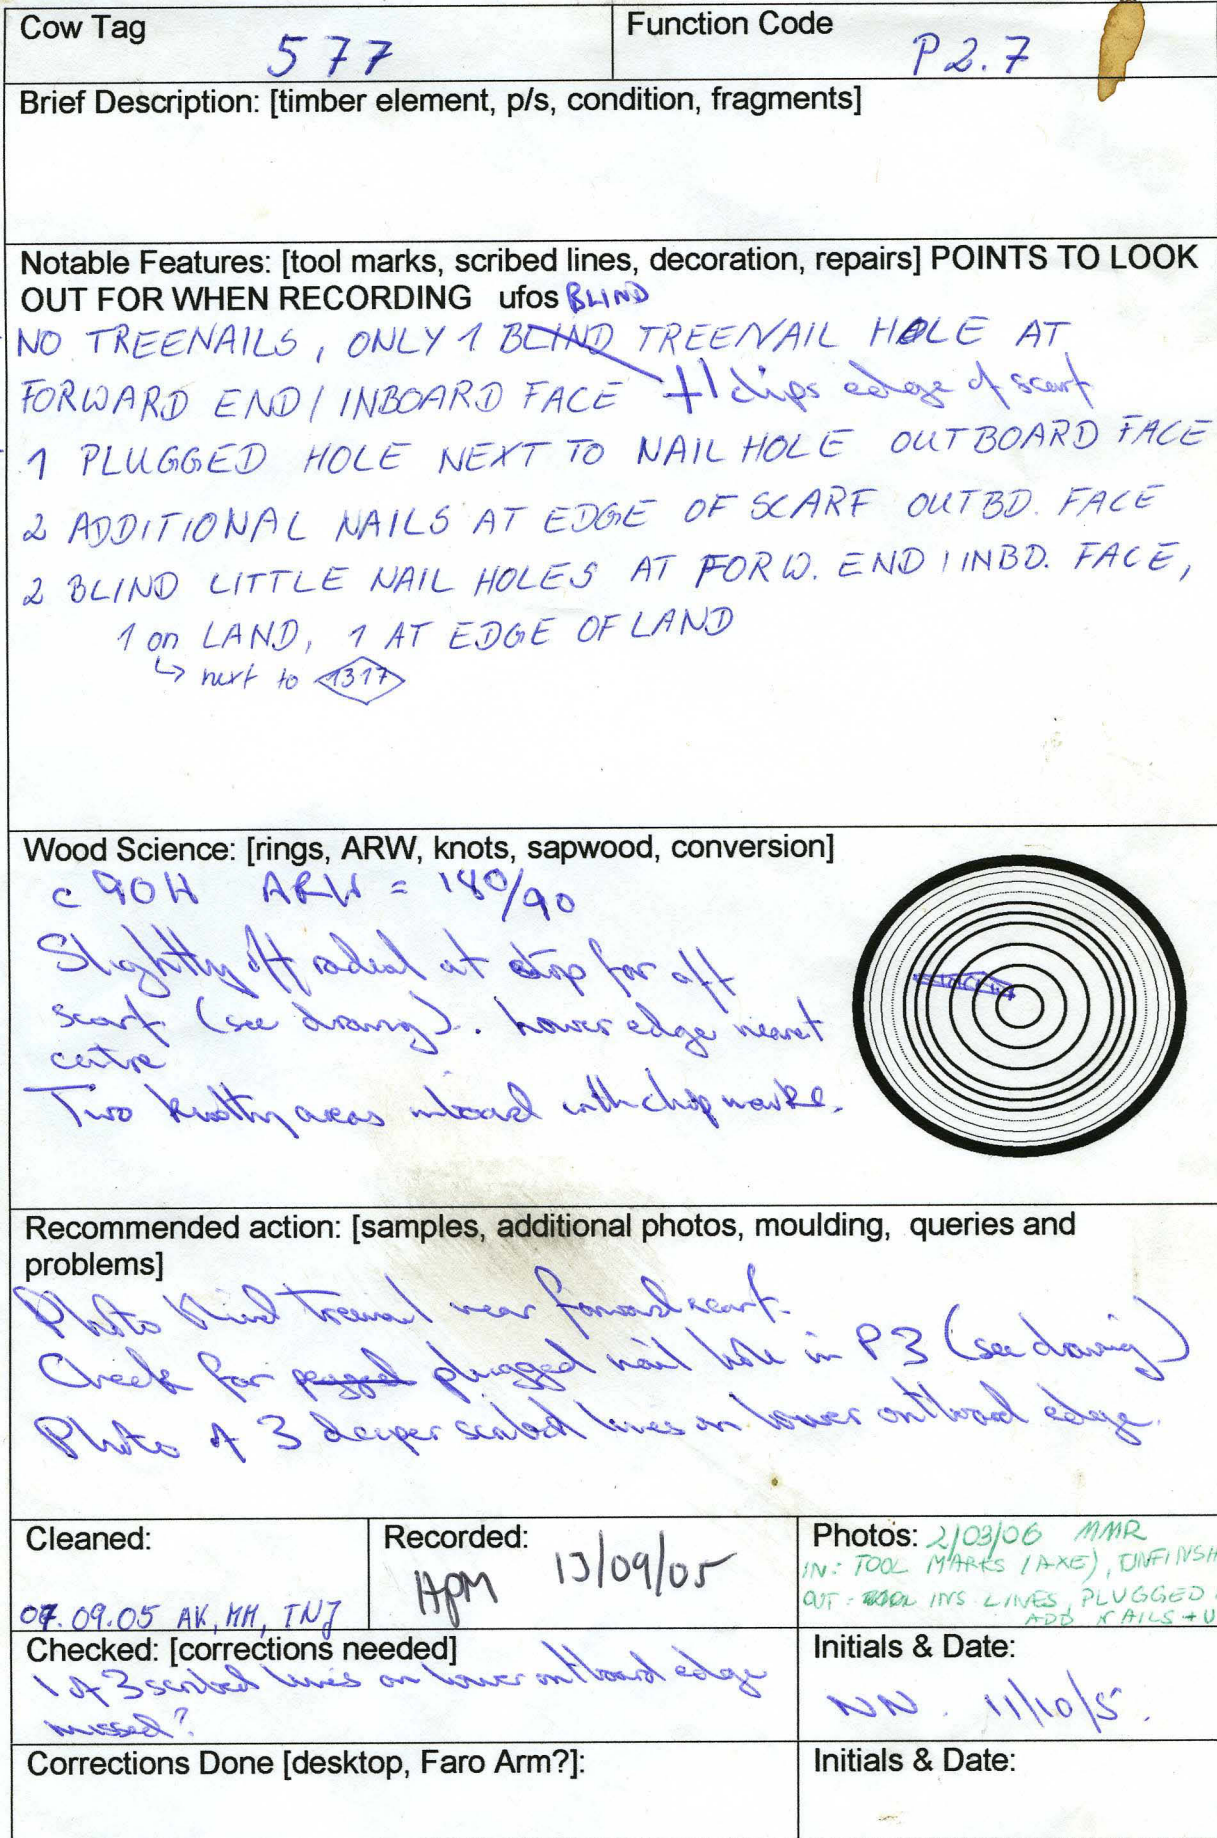 Cow Tag
577
Function Code
P2.7
Brief Description: [timber element, p/s, condition, fragments]
Notable Features: [tool marks, scribed lines, decoration, repairs] POINTS TO LOOK
OUT FOR WHEN RECORDING ufos BLIND
NO TREENAILS, ONLY 1 BLIND TREENAIL HOLE AT
FORWARD END / INBOARD FACE +1 clips edge of scarf
1 PLUGGED HOLE NEXT TO NAIL HOLE OUTBOARD FACE
2 ADDITIONAL NAILS AT EDGE OF SCARF OUTBD. FACE
2 BLIND LITTLE NAIL HOLES AT FORW. END / INBD. FACE,
1 on LAND, 1 AT EDGE OF LAND
↳ next to 1317
Wood Science: [rings, ARW, knots, sapwood, conversion]
c 90H ARW = 180/90
Slightly off radial at stop for aft
scarf (see drawing). Lower edge nearest
centre
Two knotty areas inboard with chop marks.
Recommended action: [samples, additional photos, moulding, queries and
problems]
Photo blind treenail near forward scarf.
Check for plugged nail hole in P3 (see drawing)
Photo of 3 deeper scribed lines on lower outboard edge.
Cleaned:
07.09.05 AK, HH, TNJ
Recorded:
13/09/05
HPM
Photos: 2/03/06 MMR
IN: TOOL MARKS (AXE), UNFINISH
OUT: INS LINES, PLUGGED
ADD NAILS + U
Checked: [corrections needed]
1 of 3 scribed lines on lower outboard edge
missed?
Initials & Date:
NN. 11/10/5.
Corrections Done [desktop, Faro Arm?]:
Initials & Date: